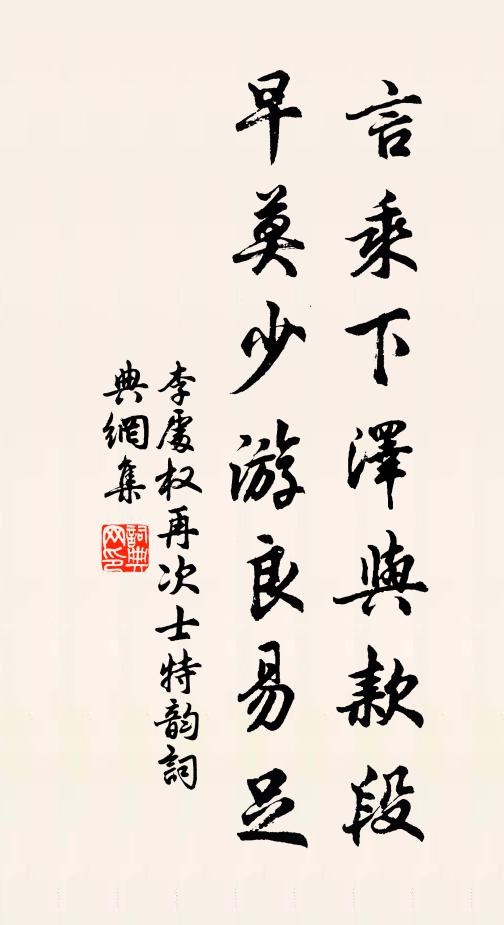 言乘下澤與款段
早莫少游良易足
李處权再次士特韵詞
典網集
詞典网印